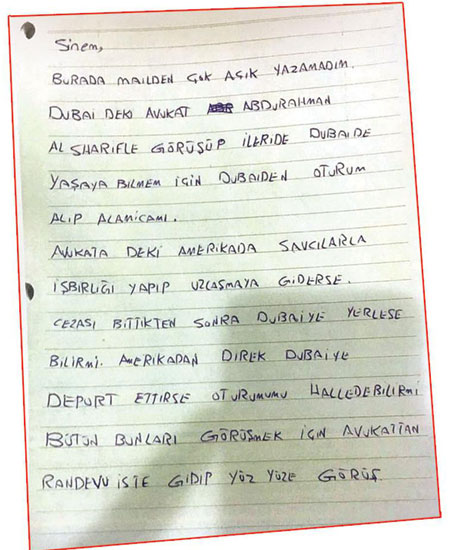 Sinem,
BURADA MAİLDEN ÇOK AÇIK YAZAMADIM.
DUBAI DEKİ AVUKAT ABDURAHMAN
AL SHARIFLE GÖRÜŞÜP İLERİDE DUBAIDE
YAŞAYA BİLMEM İÇİN DUBAIDEN OTURUM
ALIP ALAMICAMI.
AVUKATA DEKİ AMERİKADA SAVCILARLA
İŞBİRLİĞİ YAPIP UZLAŞMAYA GİDERSE.
CEZASI BİTTİKTEN SONRA DUBAİYE YERLEŞE
BİLİRMİ. AMERİKADAN DİREK DUBAİYE
DEPORT ETTİRSE OTURUMUMU HALLEDEBİLİRMİ
BÜTÜN BUNLARI GÖRÜŞMEK İÇİN AVUKATTAN
RANDEVU İSTE GİDİP YÜZ YÜZE GÖRÜŞ.